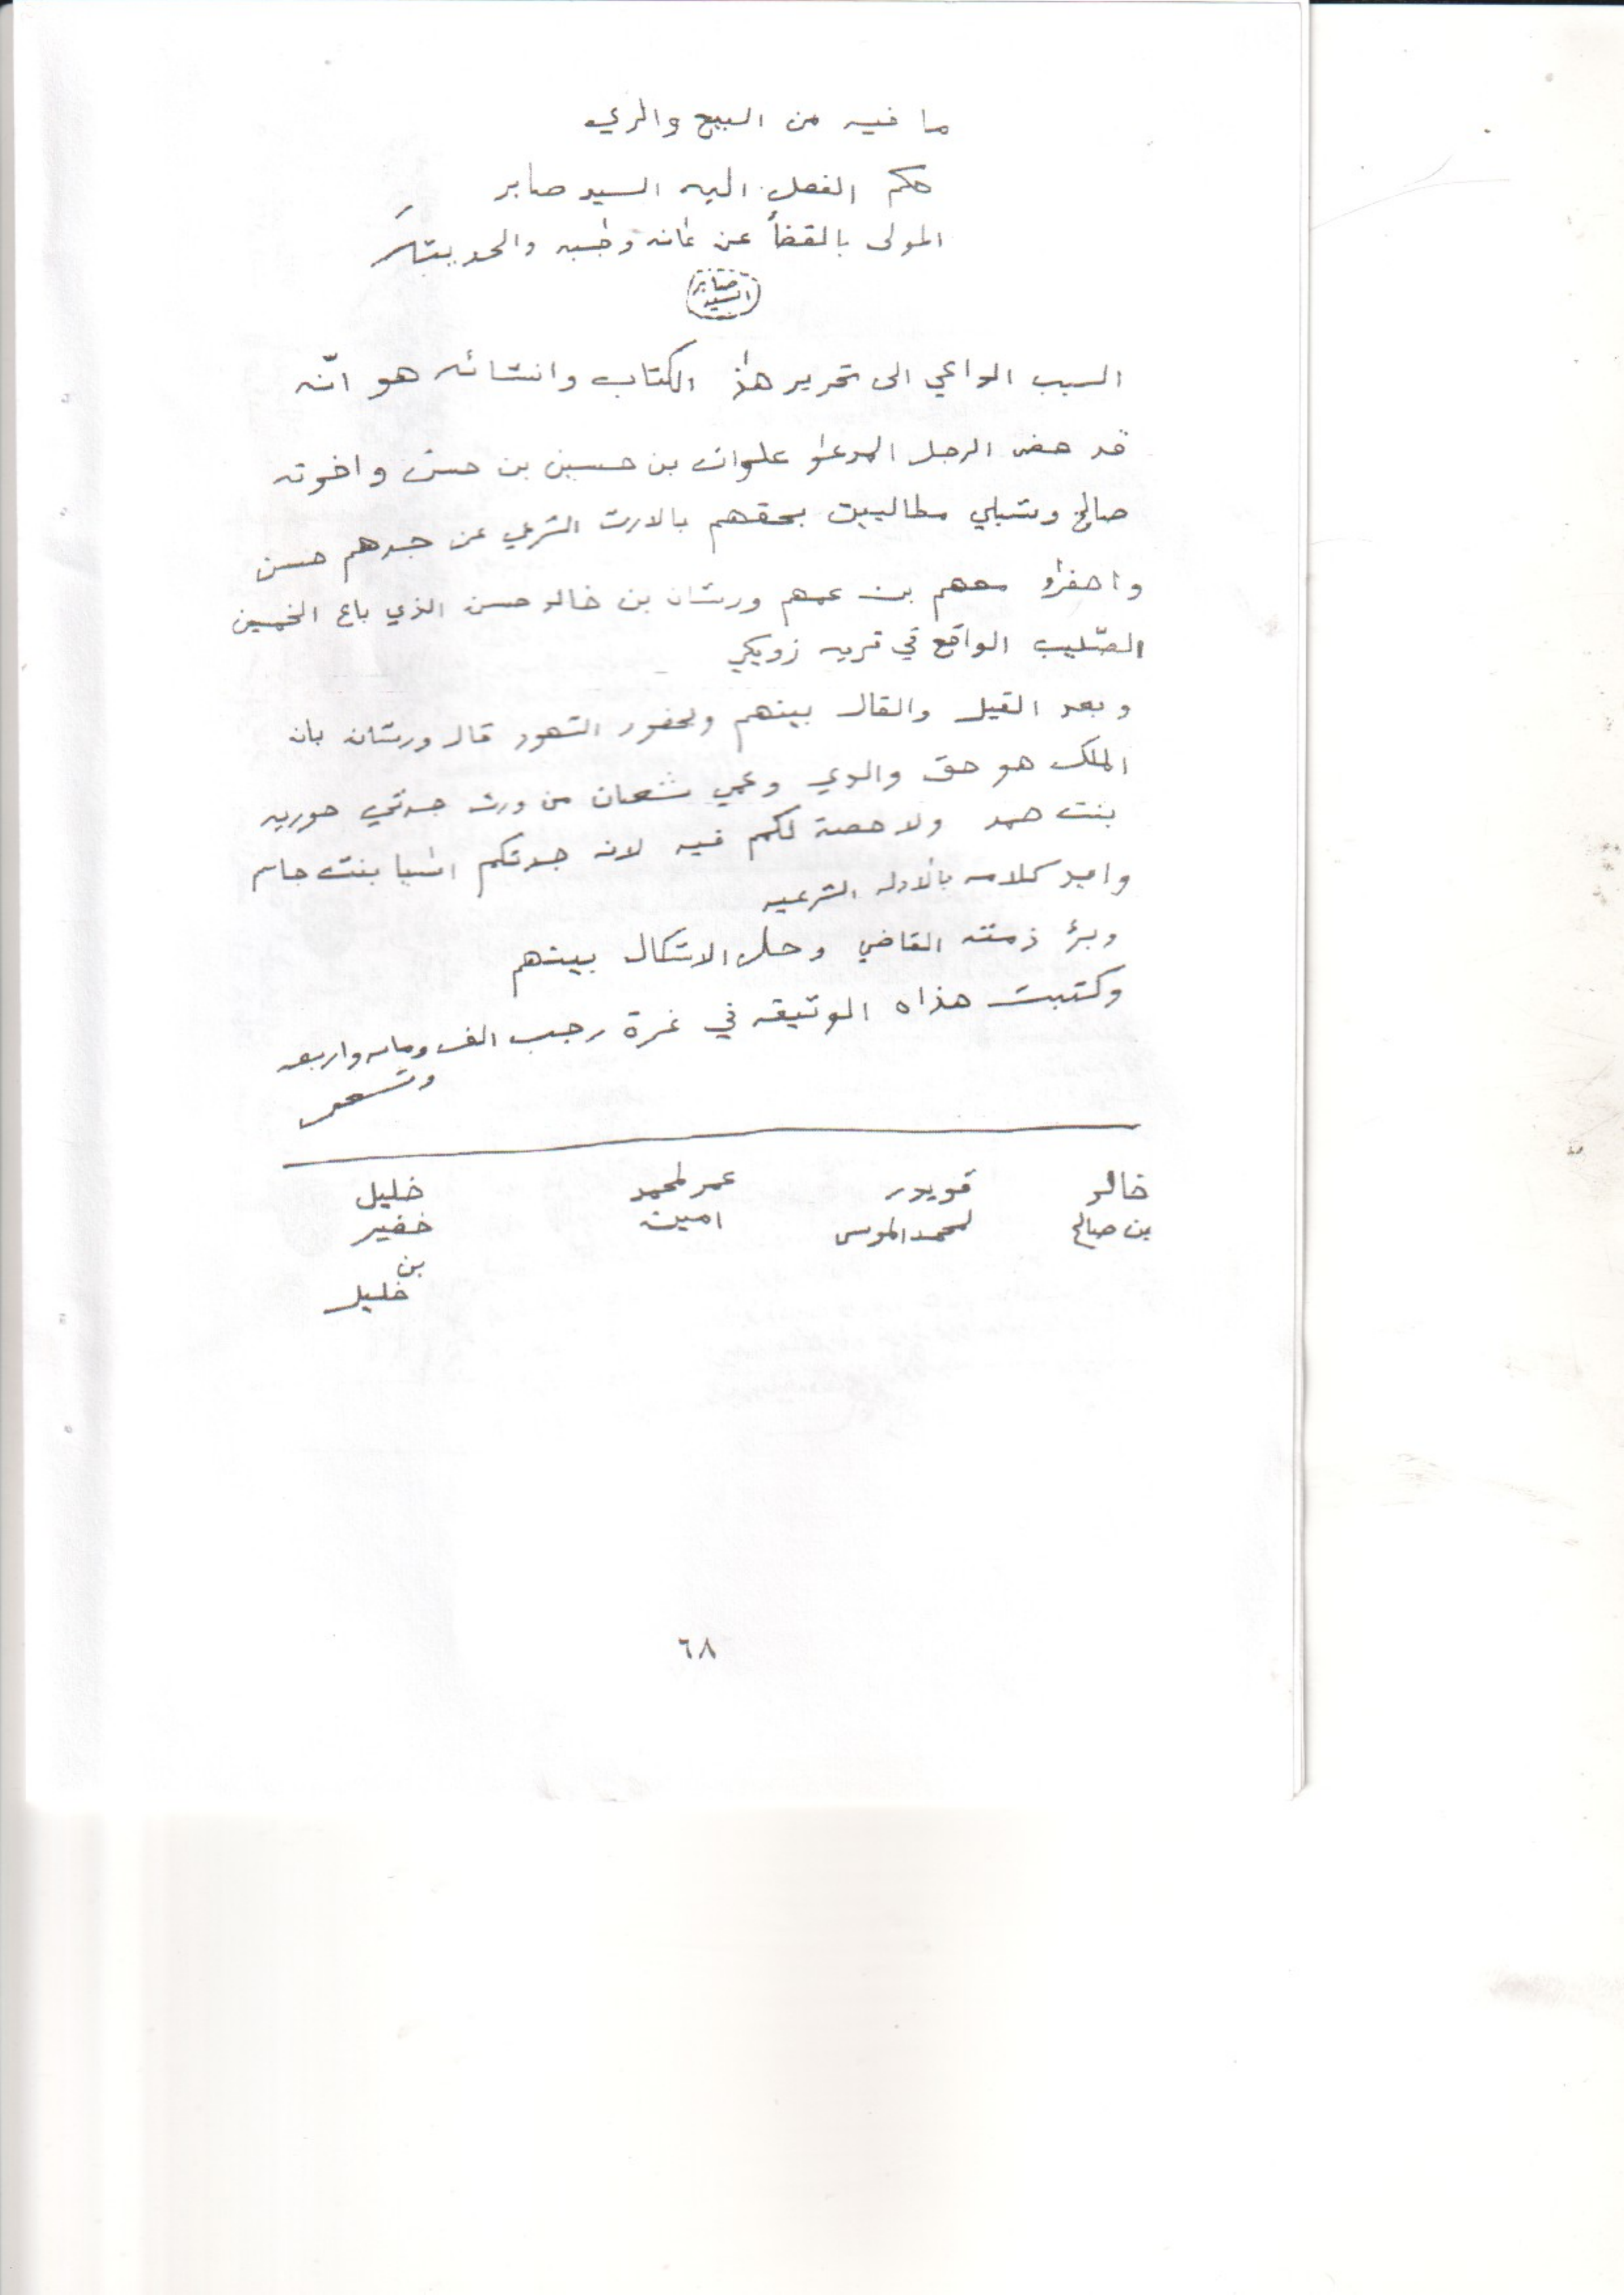 ما فيه من البيع والري
حكم الفصل اليه السيد صابر
المولى بالقضأ عن عانه وخسبه والحديثه
السيد صابر
السبب الداعي الى تحرير هذا الكتاب وانشائه هو انّه
قد حضر الرجل المدعو علوان بن حسين بن حسن واخوته
صالح وشبلي مطالبين بحقهم بالارث الشرعي عن جدهم حسن
واحضرو معهم بن عمهم ورشان بن خالد حسن الذي باع الخمسين
الصّليب الواقع في قريه زويكي
وبعد القيل والقال بينهم وبحضور الشهود قال ورشان بان
الملك هو حق والدي وعمي شعبان من ورث جدتي حوريه
بنت حمد ولا حصة لكم فيه لانه جدتكم اسيا بنت جاسم
وايد كلامه بالادله الشرعيه
وبرئ ذمته القاضي وحل الاشكال بينهم
وكتبت هذاه الوثيقه في غرة رجب الف ومايه واربعه
وتسعين
خالد قويدر عمر لمحمد خليل
بن صالح لمحمد الموسى امين خضير
بن
خليل
٦٨